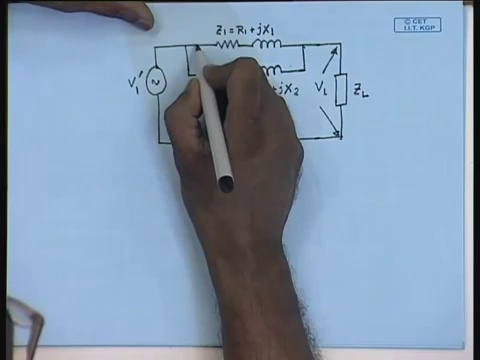 © CET
I.I.T. KGP
Z₁ = R₁ + jX₁
V₁'
+ jX₂
V_L
Z_L